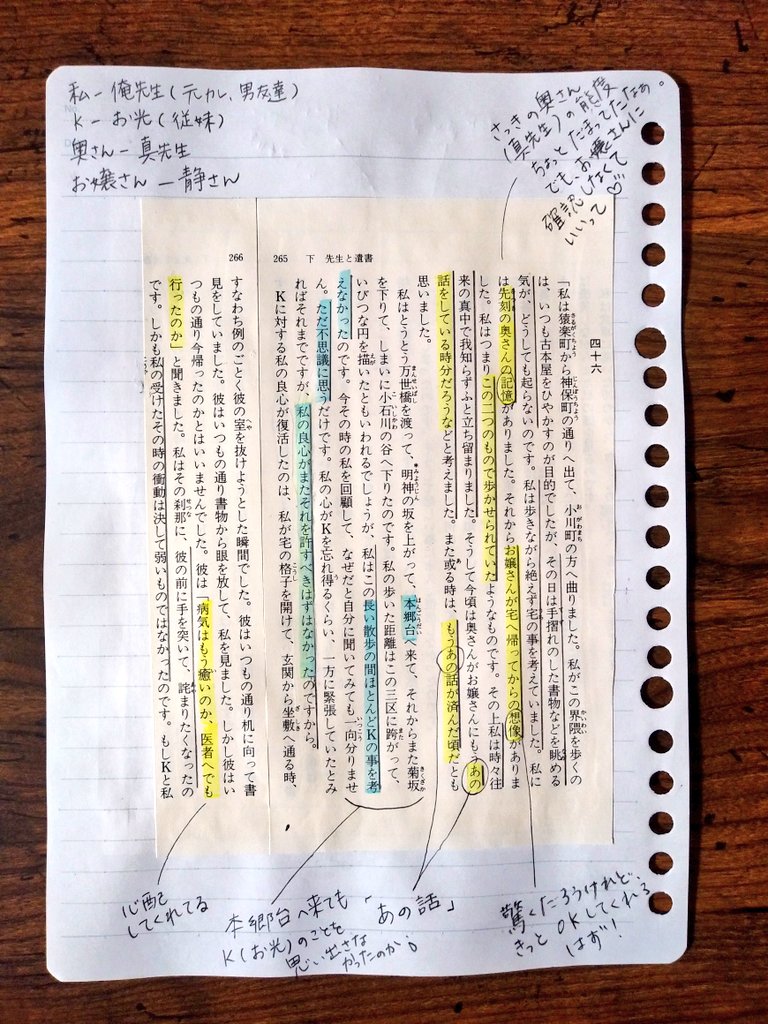 私ー俺先生(元カレ、男友達)
Kーお光(従妹)
奥さんー真先生
お嬢さんー静さん
さっきの奥さん
(真先生)の態度
ちょっとたまってたなぁ。
でも、お嬢さんに
確認しなくて
いいって♡
266
265 下 先生と遺書
四十六
「私は猿楽町から神保町の通りへ出て、小川町の方へ曲りました。私がこの界隈を歩くの
は、いつも古本屋をひやかすのが目的でしたが、その日は手摺れのした書物などを眺める
気が、どうしても起らないのです。私は歩きながら絶えず宅の事を考えていました。私に
は先刻の奥さんの記憶がありました。それからお嬢さんが宅へ帰ってからの想像がありま
した。私はつまりこの二つのもので歩かせられていたようなものです。その上私は時々往
来の真中で我知らずふと立ち留まりました。そうして今頃は奥さんがお嬢さんにもうあの
話をしている時分だろうなどと考えました。また或る時は、もうあの話が済んだ頃だとも
思いました。
私はとうとう万世橋を渡って、明神の坂を上がって、本郷台へ来て、それからまた菊坂
を下りて、しまいに小石川の谷へ下りたのです。私の歩いた距離はこの三区に跨がって、
いびつな円を描いたともいわれるでしょうが、私はこの長い散歩の間ほとんどKの事を考
えなかったのです。今その時の私を回顧して、なぜだと自分に聞いてみても一向分りませ
ん。ただ不思議に思うだけです。私の心がKを忘れ得るくらい、一方に緊張していたとみ
ればそれまでですが、私の良心がまたそれを許すべきはずはなかったのですから。
Kに対する私の良心が復活したのは、私が宅の格子を開けて、玄関から坐敷へ通る時、
すなわち例のごとく彼の室を抜けようとした瞬間でした。彼はいつもの通り机に向って書
見をしていました。彼はいつもの通り書物から眼を放して、私を見ました。しかし彼はい
つもの通り今帰ったのかとはいいませんでした。彼は「病気はもう癒いのか、医者へでも
行ったのか」と聞きました。私はその刹那に、彼の前に手を突いて、詫まりたくなったの
です。しかも私の受けたその時の衝動は決して弱いものではなかったのです。もしKと私
驚くだろうけれど、
きっとOKしてくれる
はず!
「あの話」
本郷台へ来ても
K(お光)のことを
思い出さな
かったのか。
心配
してくれてる